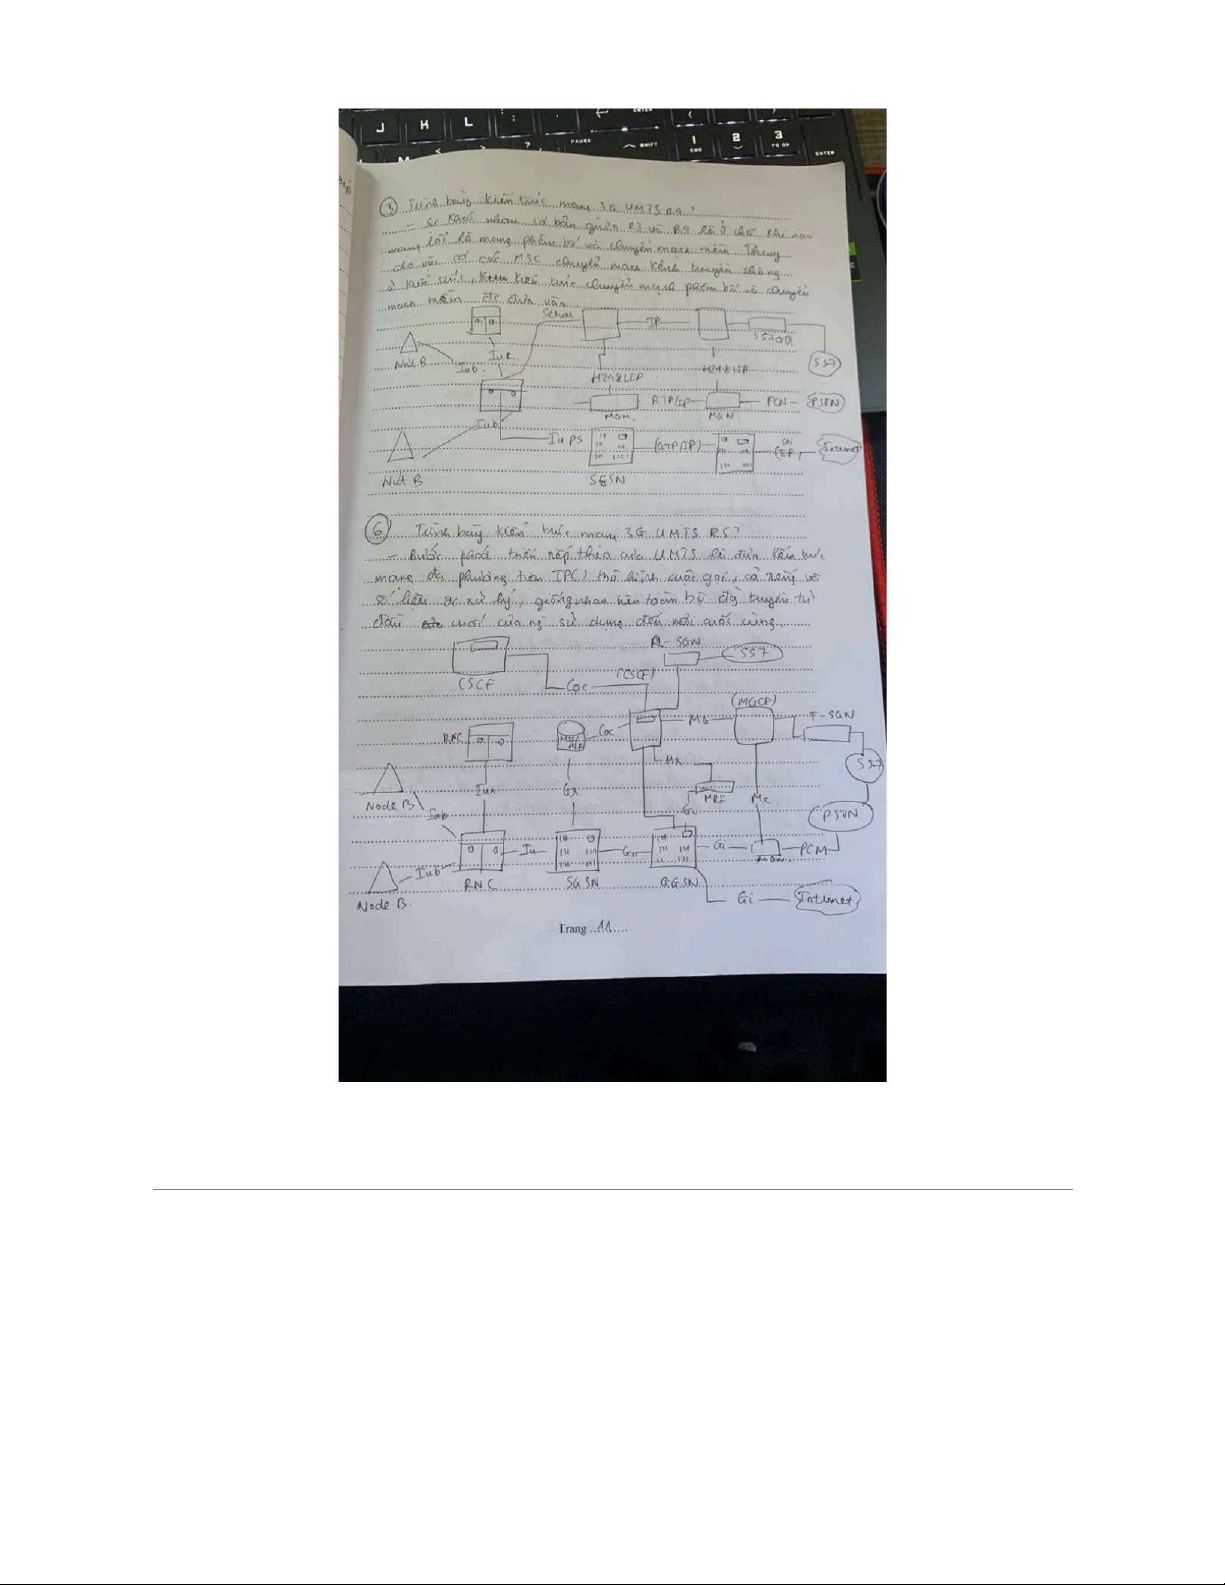 J K L
ENTER
PAUSE
SHIFT
1 2 3
END
PG DN
ENTER
M
③ Trình bày kiến trúc mạng 3G UMTS R4?
- Sự khác nhau cơ bản giữa R3 và R4 là ở chỗ khi này
mạng lõi là mạng phân bố và chuyển mạch mềm. Thay
cho việc có các MSC chuyển mạch kênh truyền thống
ở kiến trúc, kiến trúc chuyển mạch phân bố và chuyển
mạch mềm đc đưa vào
Server
IP
SS7GW
SS7
Nút B
Iub
IuR
H248/IP
H248/IP
RTP/IP
PCM
PSTN
MGW
Iub
Iu PS
(GTP/IP)
Gi
(IP)
Internet
Nút B
SGSN
⑥ Trình bày kiến trúc mạng 3G UMTS R5?
- Bước phát triển tiếp theo của UMTS là đưa kiến trúc
mạng đa phương tiện IP( ) thể hiện cuộc gọi, cả tiếng và
số liệu đc xử lý, giống nhau trên toàn bộ đg truyền từ
đầu cuối của ng sử dụng đến nơi cuối cùng
R-SGW
SS7
CSCF
(CSCF)
(MGCF)
T-SGW
RNC
HLR
MG
SS7
Mr
Iur
Gr
MRF
Mc
Node B
Iub
Gi
PSTN
Iu
Gn
Gi
PCM
Iub
RNC
SGSN
GGSN
Node B
Gi
Internet
Trang 11